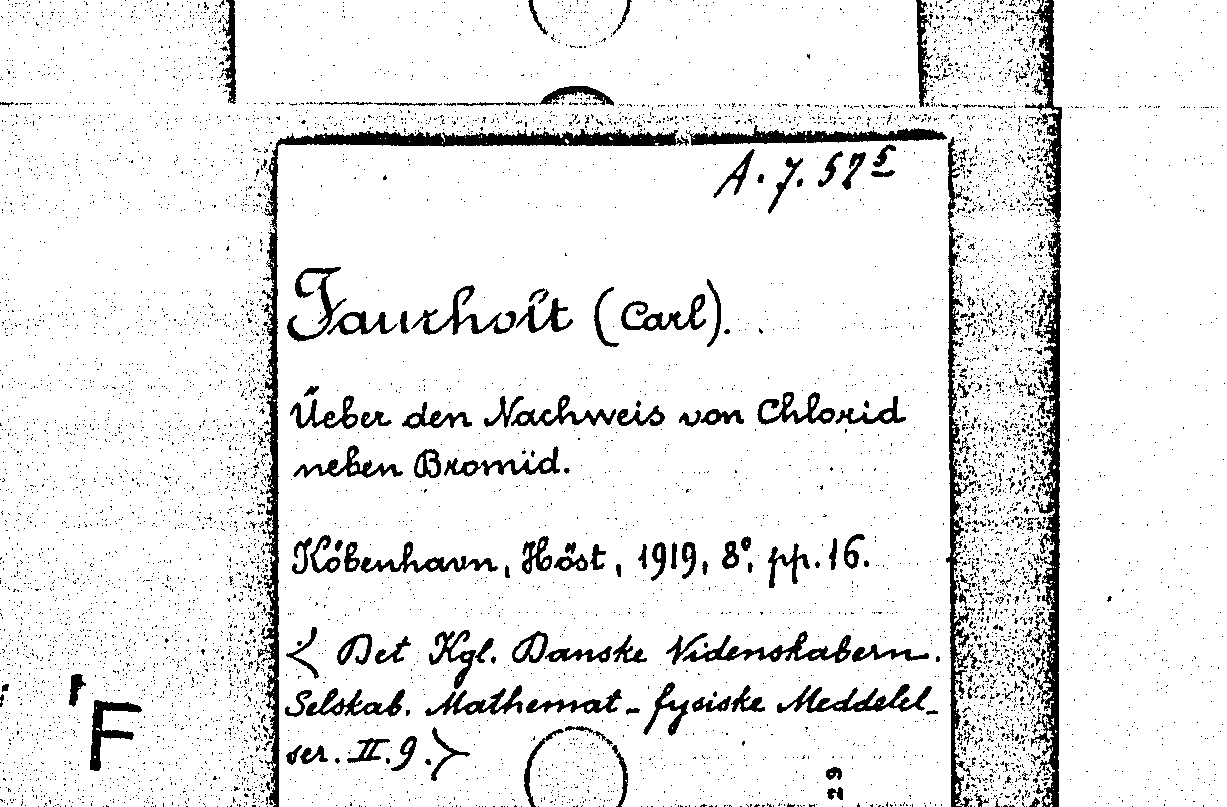 A. 7. 52⁵
Faurholt (Carl).
Üeber den Nachweis von Chlorid
neben Bromid.
Kóbenhavn, Höst, 1919, 8°, pp. 16.
< Det Kgl. Danske Videnskabern.
Selskab. Mathemat - fysiske Meddelel-
ser. II. 9. >
'F
29